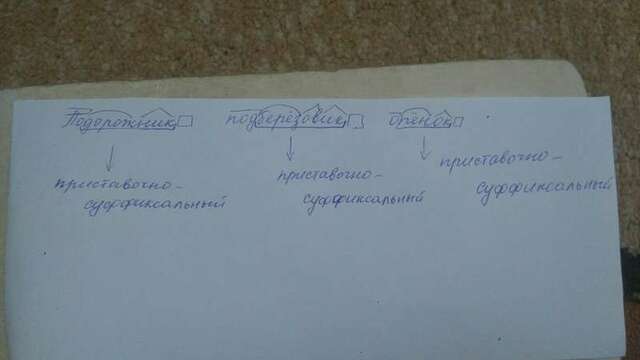 Подорожник подберёзовик опёнок
приставочно-
суффиксальный
приставочно-
суффиксальный
приставочно-
суффиксальный